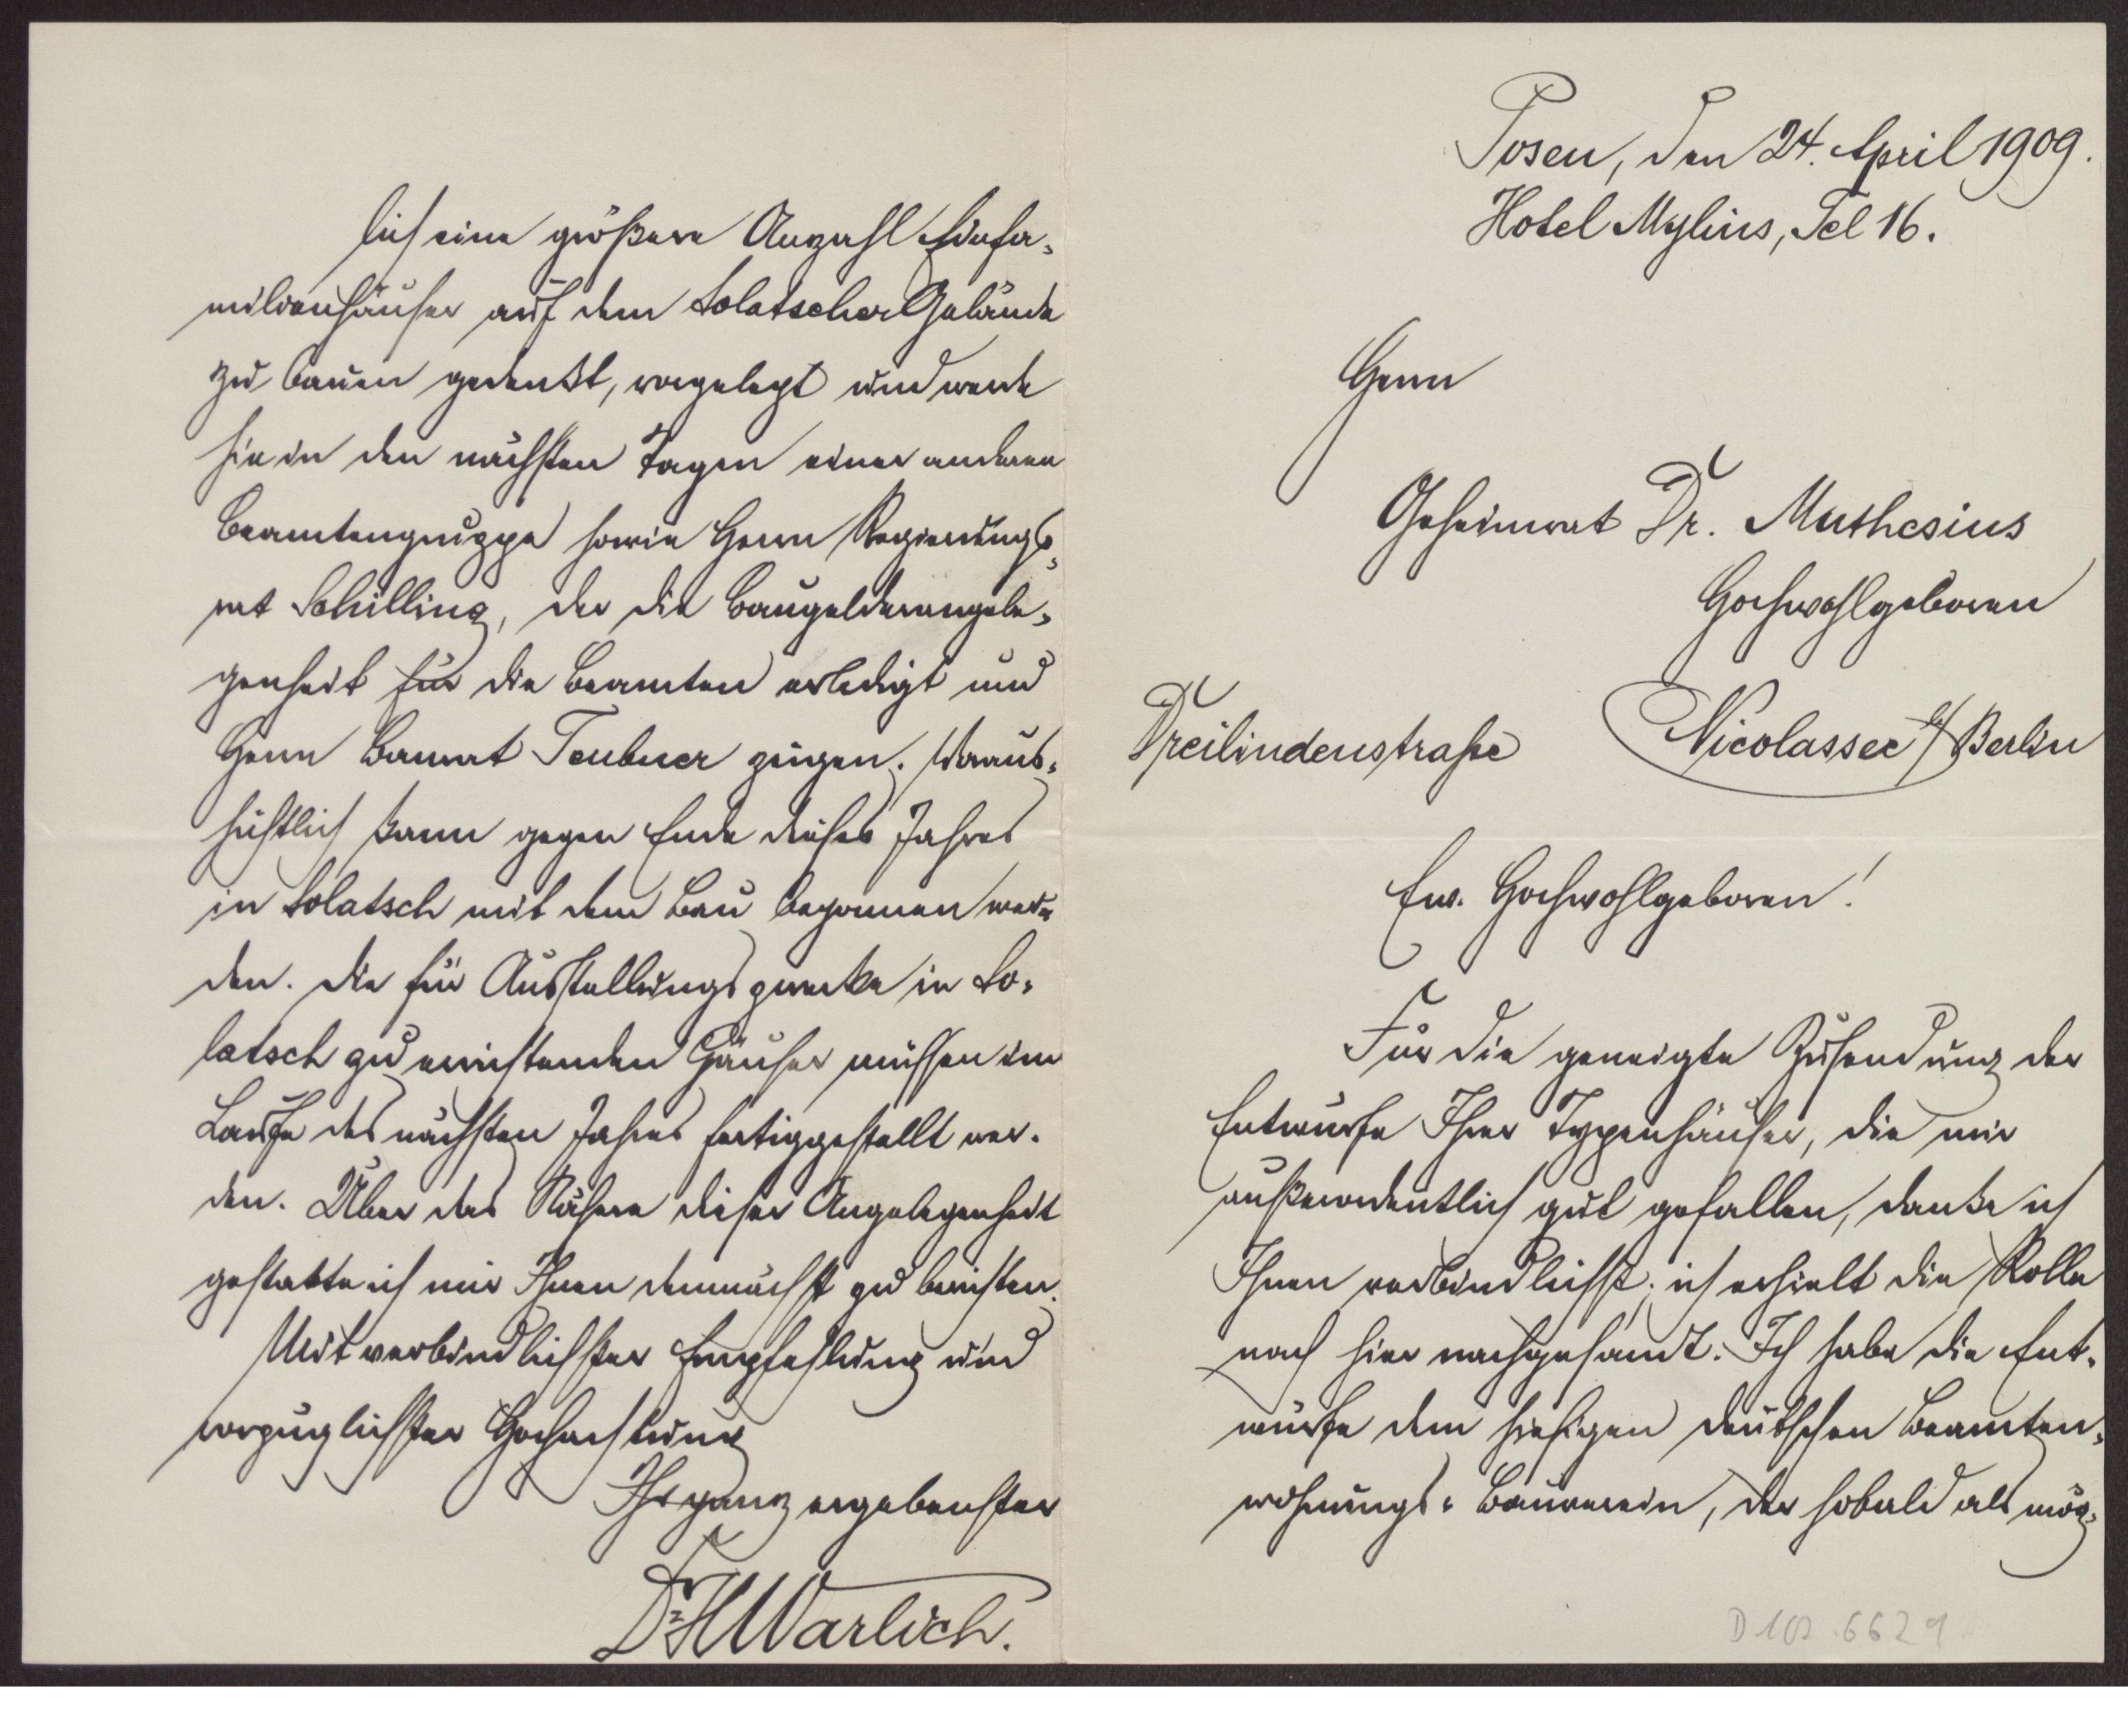 Posen, den 24. April 1909.
Hotel Mylius, Tel 16.
Herrn
Geheimrat Dr. Muthesius
Hochwohlgeboren
Dreilindenstraße Nicolassee b/ Berlin
Ew. Hochwohlgeboren!
Für die geneigte Zusendung der
Entwürfe Ihrer Typenhäuser, die mir
außerordentlich gut gefallen, danke ich
Ihnen verbindlichst; ich erhielt die Rolle
nach hier nachgesandt. Ich habe die Ent-
würfe dem hiesigen deutschen Beamten-
wohnungs-Bauverein, der sobald als mög-
lich eine größere Anzahl Einfa-
milienhäuser auf dem Solatscher Gelände
zu bauen gedenkt, vorgelegt und werde
sie in den nächsten Tagen einer anderen
Beamtengruppe sowie Herrn Regierungs-
rat Schilling, der die Baugelderangele-
genheit für die Beamten erledigt und
Herrn Baurat Teubner zeigen. Voraus-
sichtlich kann gegen Ende dieses Jahres
in Solatsch mit dem Bau begonnen wer-
den. Die für Ausstellungszwecke in So-
latsch zu errichtenden Häuser müssen im
Laufe des nächsten Jahres fertiggestellt wer-
den. Über das Nähere dieser Angelegenheit
gestatte ich mir Ihnen demnächst zu berichten.
Mit verbindlichster Empfehlung und
vorzüglichster Hochachtung
Ihr ganz ergebenster
Dr. H Warlich.
D 102.6629